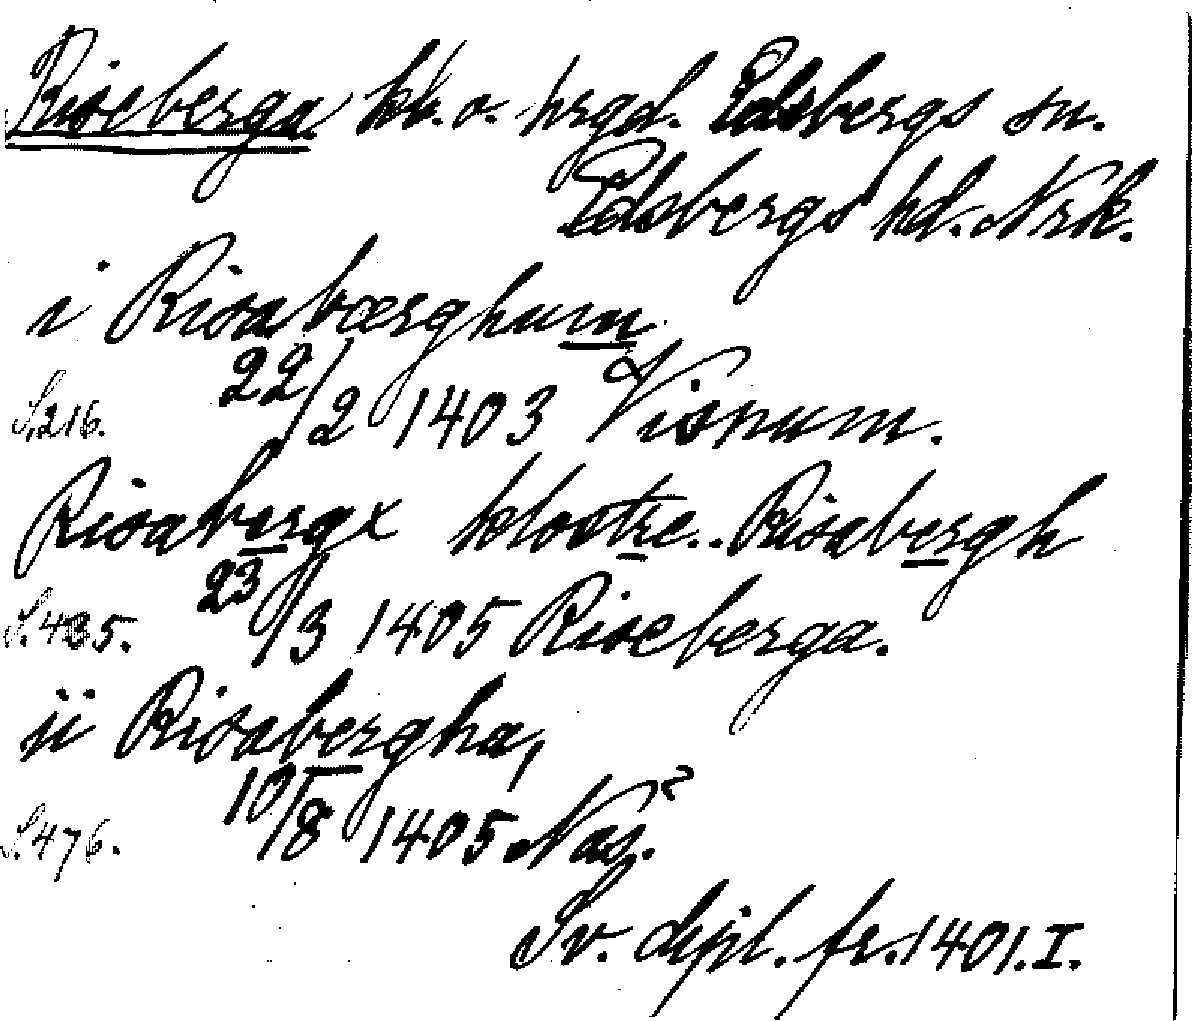 Riseberga kl. o. hrgd. Edsbergs sn.
Edsbergs hd. Nrk.
i Risabærghum
S. 216. 22/2 1403 Visnum.
Risabergx klostre.. Risabergh
S. 435. 23/3 1405 Riseberga.
ii Risabergha,
S. 476. 10/8 1405 Näs?
Sv. dipl. fr. 1401. I.